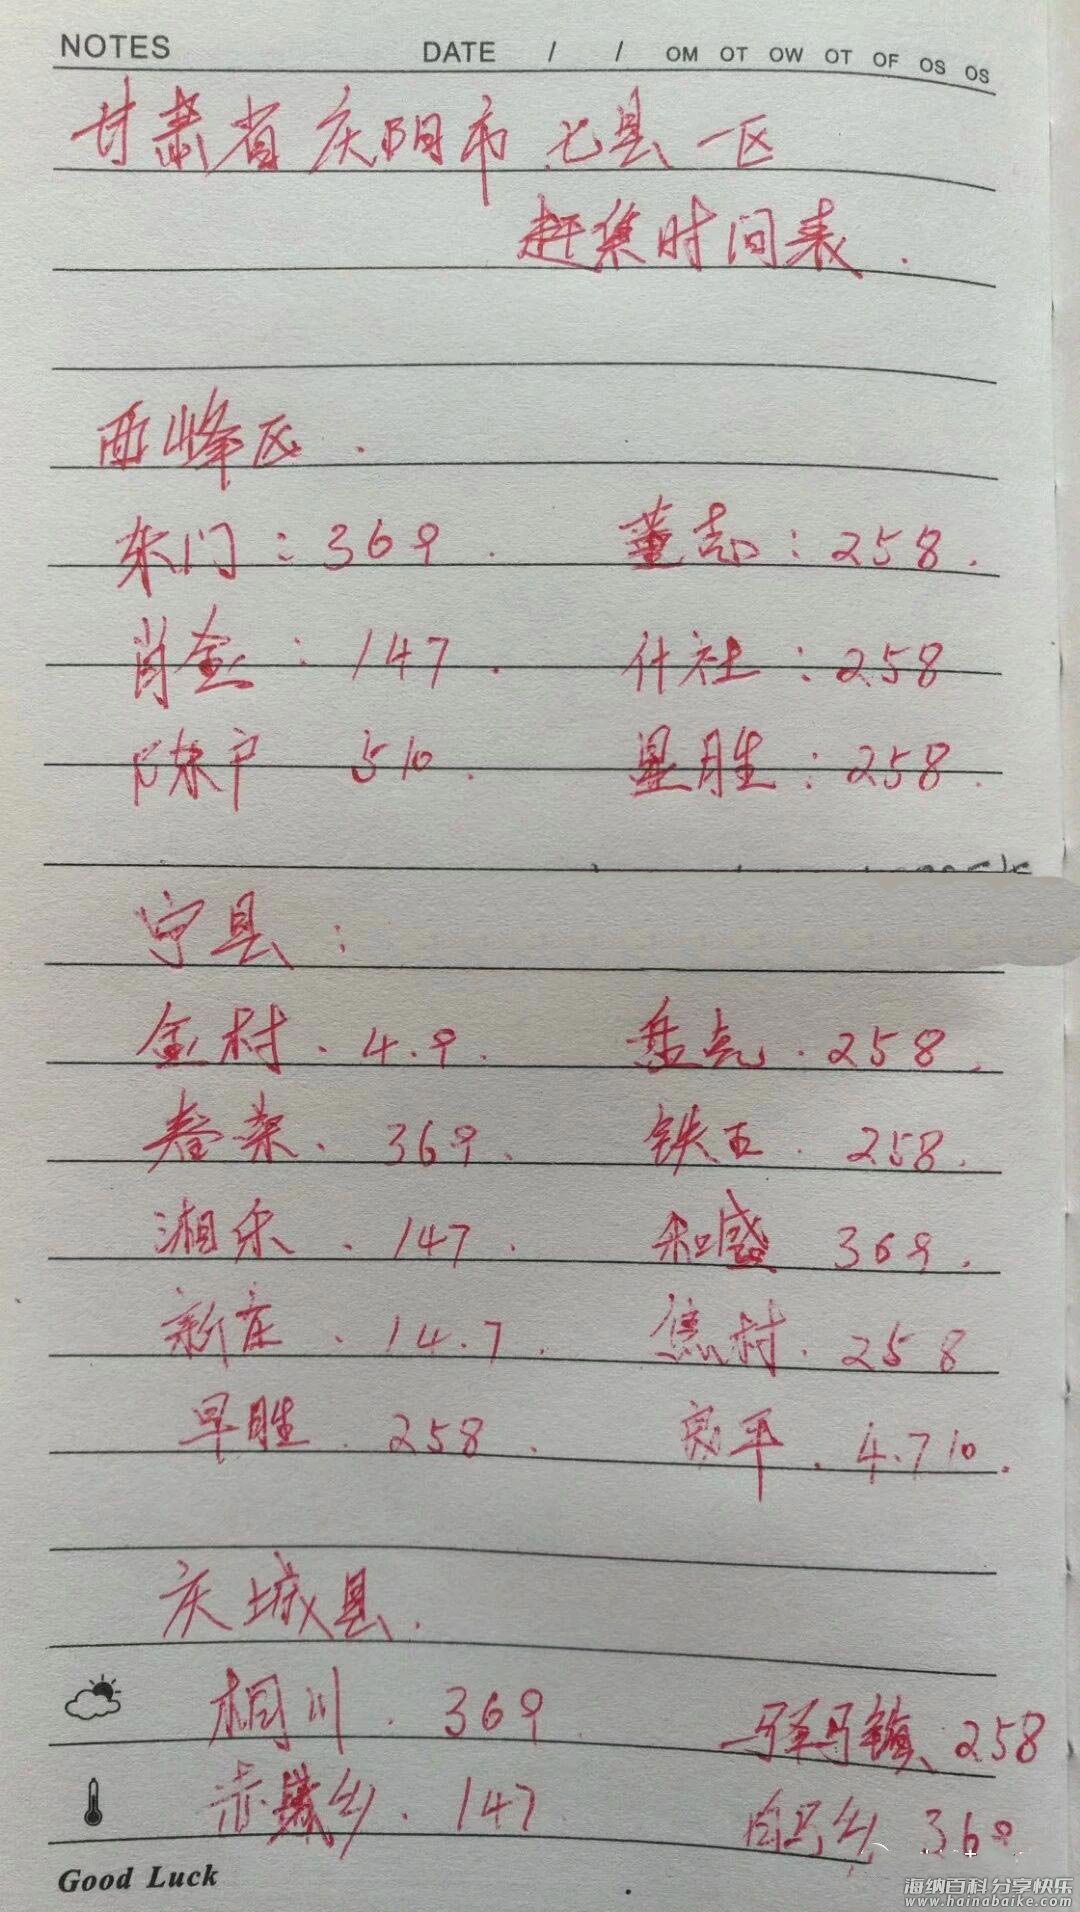 NOTES DATE / / OM OT OW OT OF OS OS
甘肃省庆阳市七县一区
赶集时间表.
西峰区.
东门:369. 董志:258.
肖金:147. 什社:258
陈户 510. 显胜:258.
宁县:
金村.4.9. 盘克.258.
春荣.369. 铁王.258.
湘乐.147. 和盛 369.
新庄.14.7. 焦村.258
早胜.258. 良平.4.710.
庆城县.
桐川.369. 驿马镇、258
赤城乡.147 白马乡 369
Good Luck
海纳百科 分享快乐
www.hainabaike.com